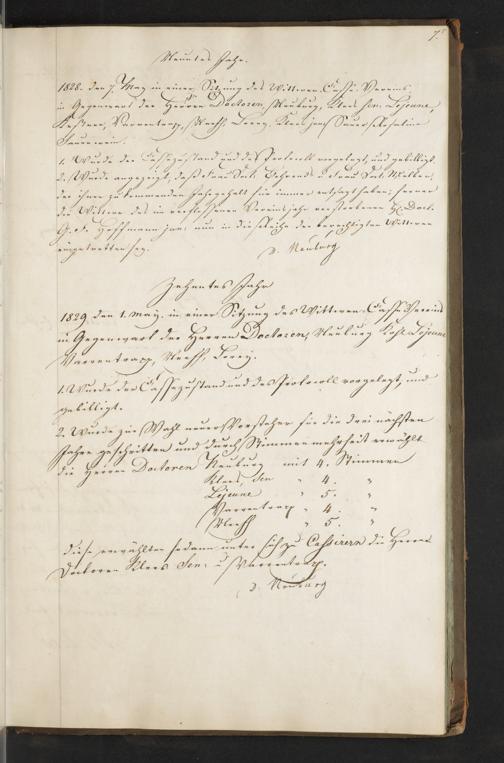 7.
Neuntes Jahr.
1828. den 7. May in einer Sitzung des Wittwen-Casse-Vereins,
in Gegenwart der Herren Doctoren, Neuburg, Kloss sen. Lejeune,
Kestner, Varrentrapp, Neeff, Lorey, Kloss jun.
1. Wurde der Cassezustand und das Protocoll vorgelegt, und gebilligt.
2. Wurde angezeigt, daß
der ihnen zukommenden Jahrgehalt für immer entsagt haben; ferner
die Wittwe des im verflossenen Vereinsjahr verstorbenen H. Doct.
G. Hoffmann jun. nun in die Reihe der berechtigten Wittwen
eingetretten sey.
D. Neuburg
Zehentes Jahr
1829. den 1. May. in einer Sitzung des Wittwen-Casse-Vereins
in Gegenwart der Herren Doctoren, Neuburg Kloß Lejeune
Varrentrapp, Neeff, Lorey.
1. Wurde der Cassezustand und das Protocoll vorgelegt, und
gebilligt.
2. Wurde zur Wahl neuer Vorsteher für die drei nächsten
Jahre geschritten und durch Stimmenmehrheit erwählt
die Herren Doctoren Neuburg mit 4. Stimmen
Kloss, sen " 4. "
Lejeune " 5. "
Varrentrapp " 4. "
Neeff " 5. "
Diese erwählten sodann unter sich zu Cassirern die Herrn
Doctoren Kloss sen. u Varrentrapp.
D. Neuburg